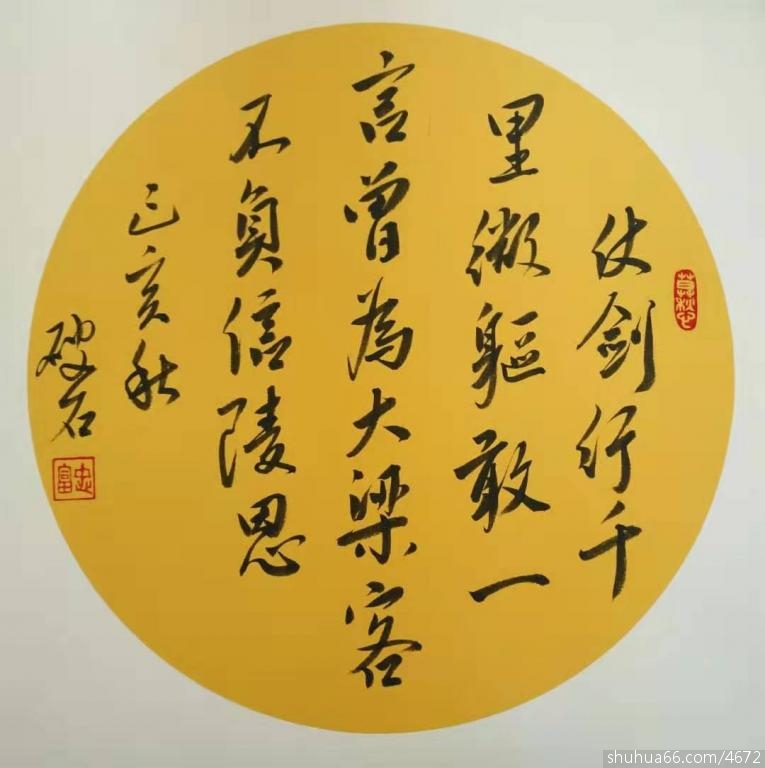 仗剑行千
里微軀敢一
言曾為大梁客
不負信陵恩
己亥秋
破石
忠富
shuhua66.com/4672